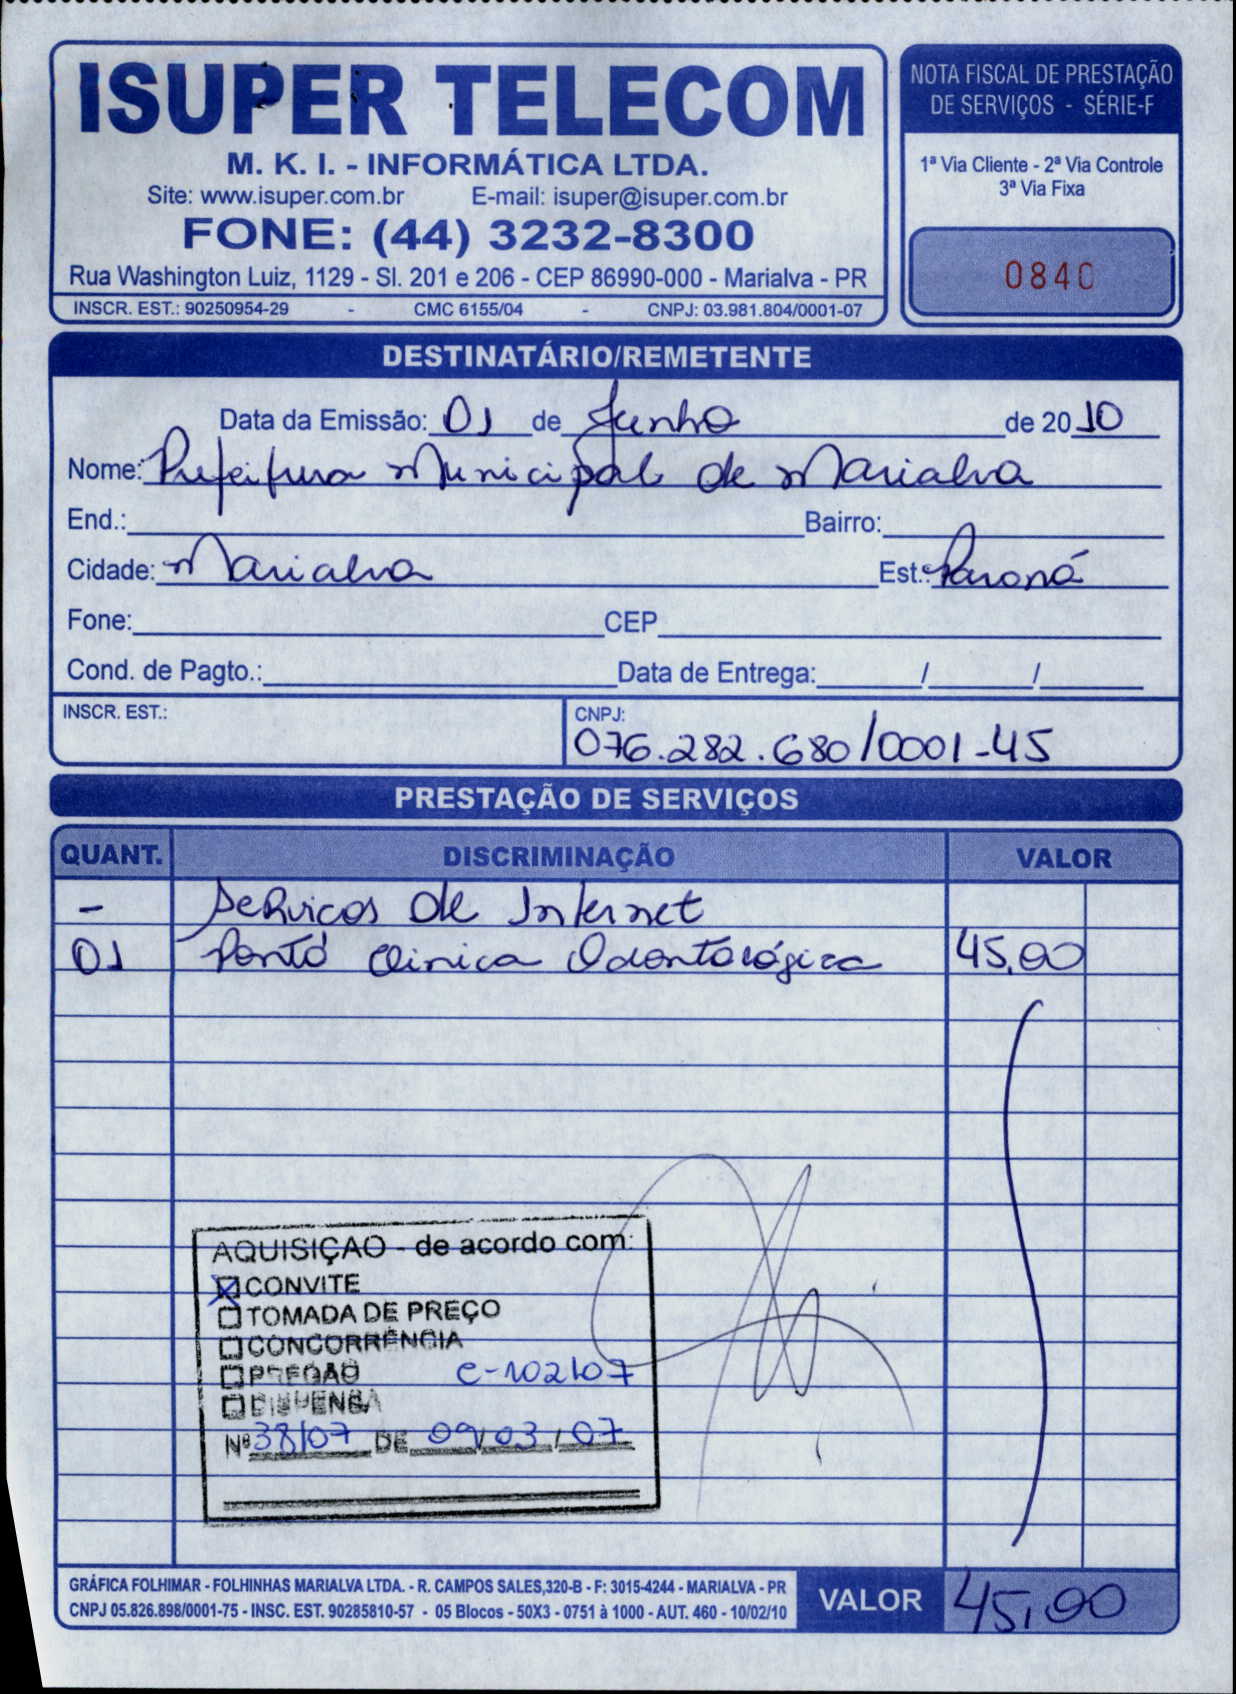 ISUPER TELECOM
M. K. I. - INFORMÁTICA LTDA.
Site: www.isuper.com.br E-mail: isuper@isuper.com.br
FONE: (44) 3232-8300
Rua Washington Luiz, 1129 - Sl. 201 e 206 - CEP 86990-000 - Marialva - PR
INSCR. EST.: 90250954-29 - CMC 6155/04 - CNPJ: 03.981.804/0001-07
NOTA FISCAL DE PRESTAÇÃO
DE SERVIÇOS - SÉRIE-F
1ª Via Cliente - 2ª Via Controle
3ª Via Fixa
0840
DESTINATÁRIO/REMETENTE
Data da Emissão: 01 de Junho de 2010
Nome: Prefeitura Municipal de Marialva
End.: Bairro:
Cidade: Marialva Est.: Paraná
Fone: CEP
Cond. de Pagto.: Data de Entrega: / /
INSCR. EST.: CNPJ:
076.282.680/0001-45
PRESTAÇÃO DE SERVIÇOS
QUANT. DISCRIMINAÇÃO VALOR
- Serviços de Internet
01 Ponto Clinica Odontológica 45,00
AQUISIÇAO - de acordo com:
CONVITE
TOMADA DE PREÇO
CONCORRÊNCIA
PREGAO C-102/07
DISPENSA
Nº 38/07 DE 09/03/07
GRÁFICA FOLHIMAR - FOLHINHAS MARIALVA LTDA. - R. CAMPOS SALES,320-B - F: 3015-4244 - MARIALVA - PR
CNPJ 05.826.898/0001-75 - INSC. EST. 90285810-57 - 05 Blocos - 50X3 - 0751 à 1000 - AUT. 460 - 10/02/10
VALOR 45,00